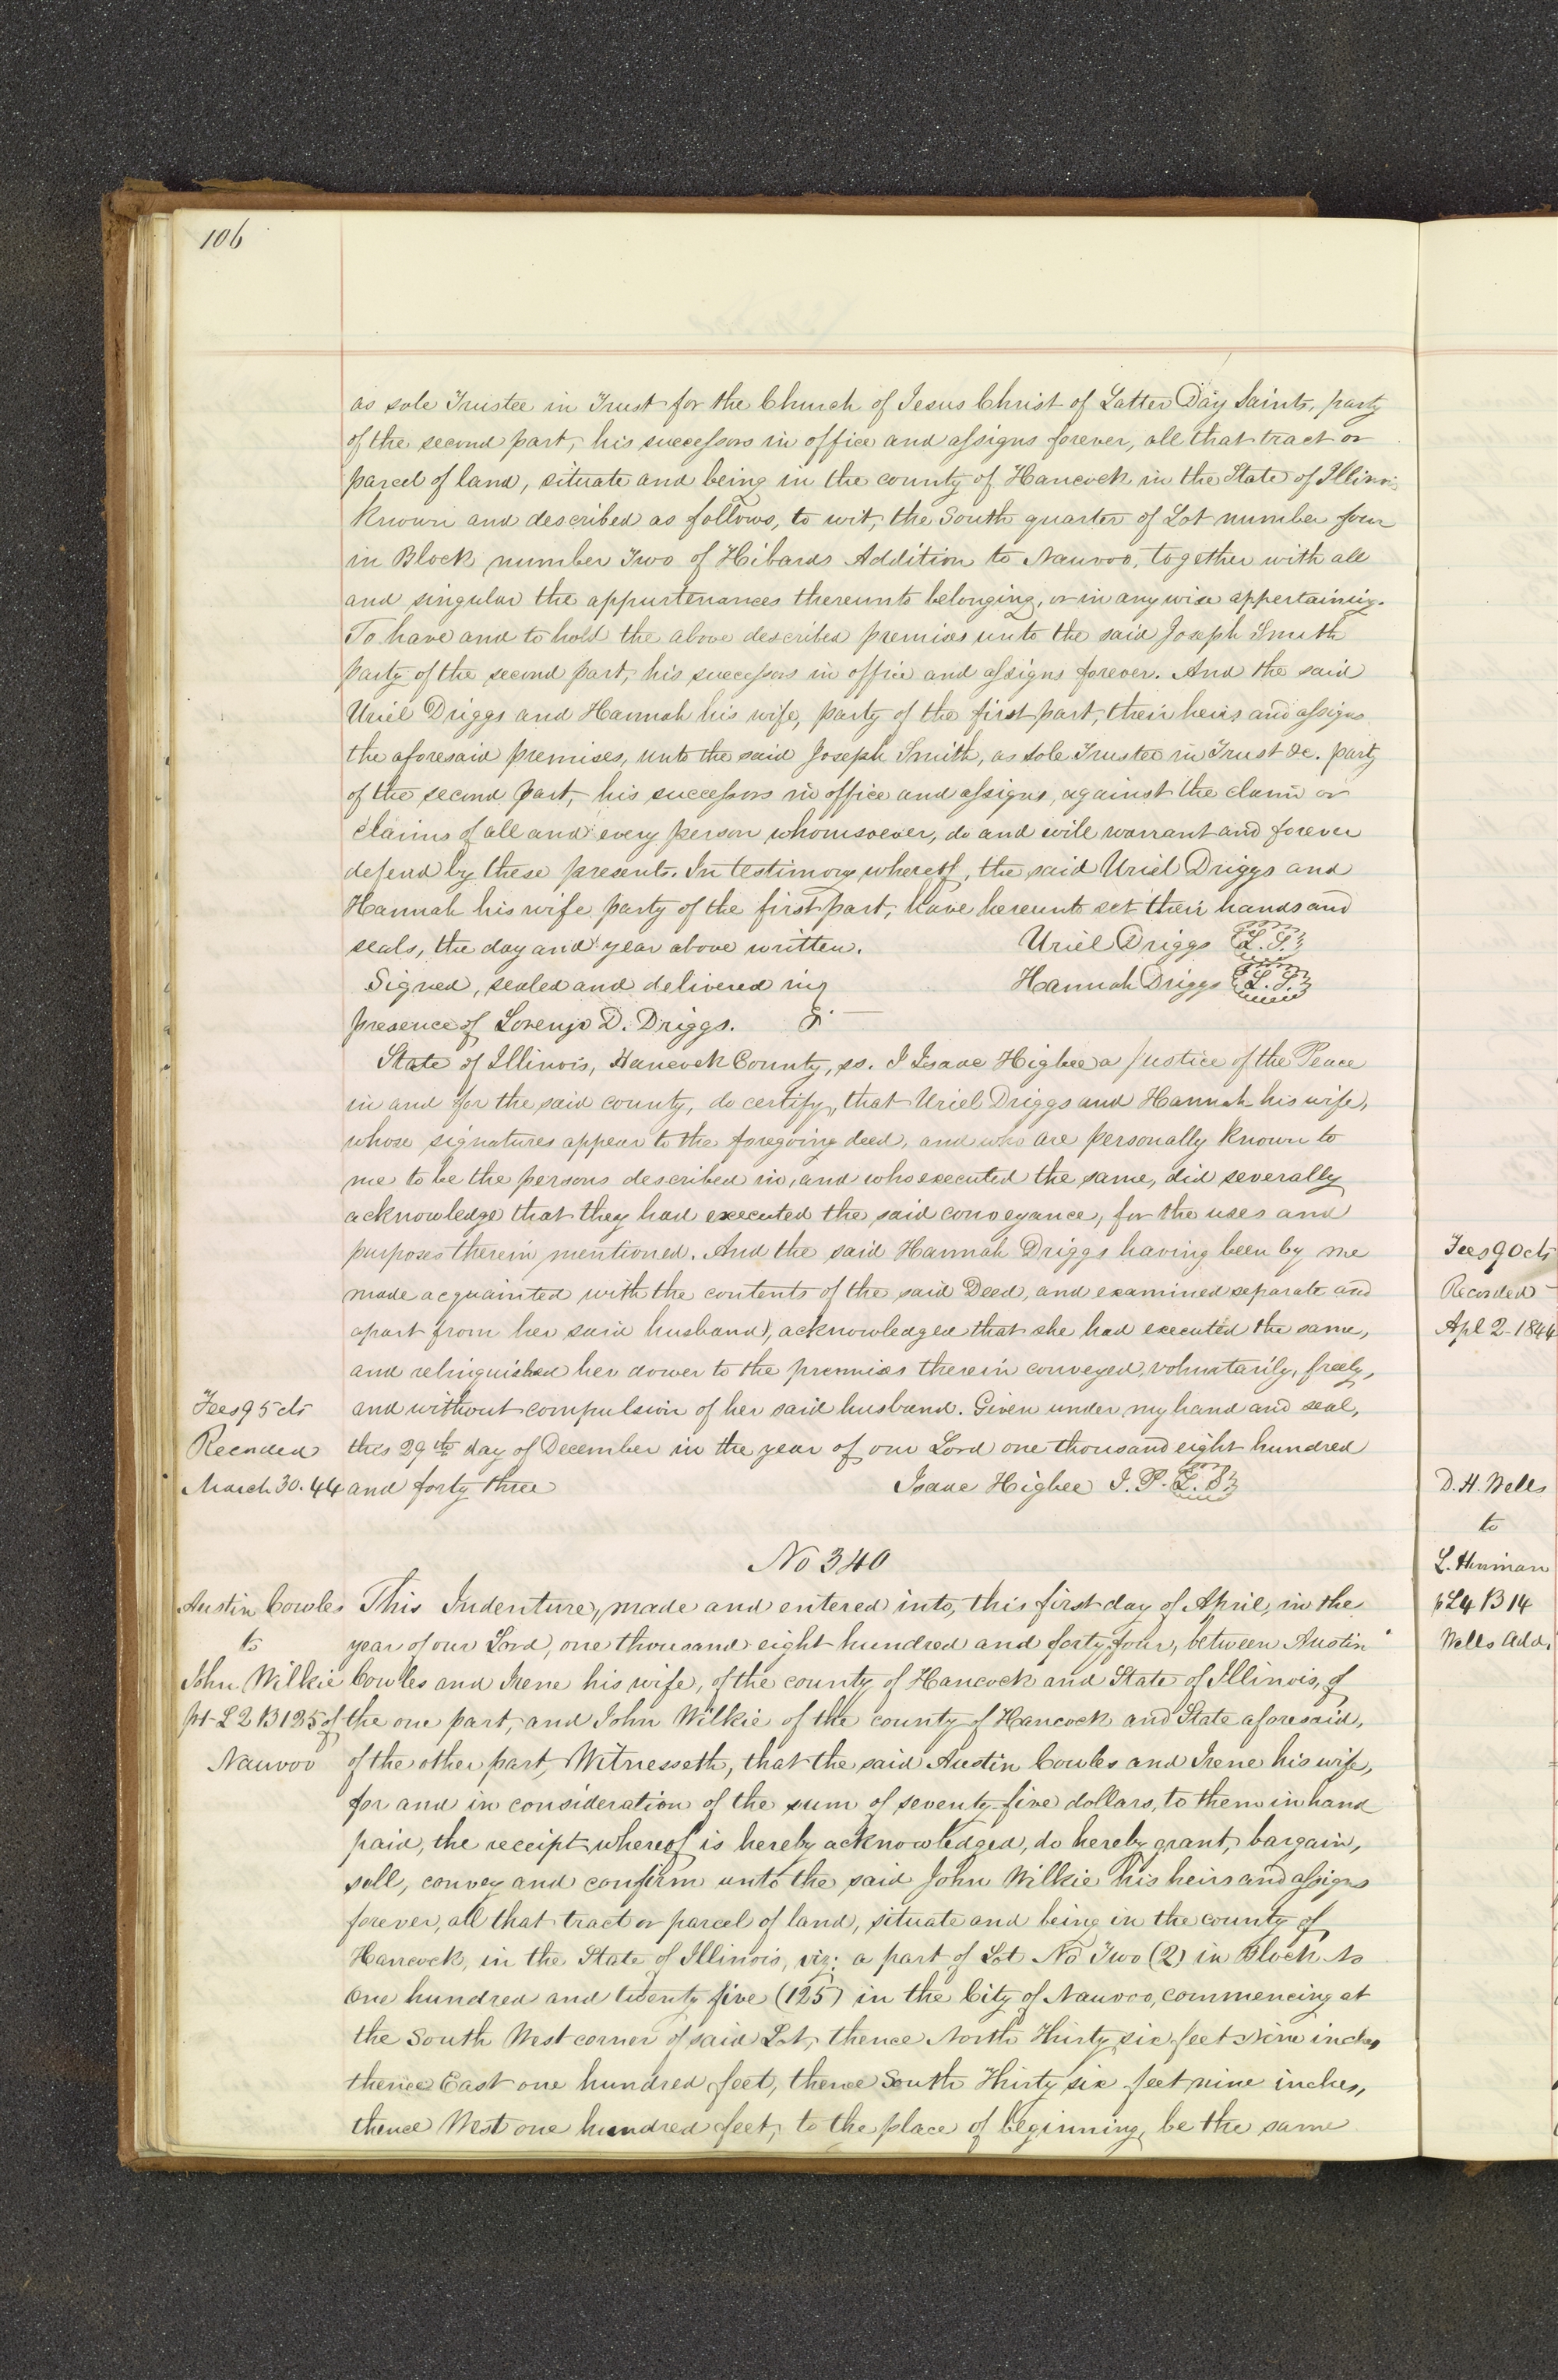 106
as sole Trustee in Trust for the Church of Jesus Christ of Latter Day Saints, party
of the second part, his successors in office and assigns forever, all that tract or
parcel of land, situate and being in the county of Hancock in the State of Illinois
known and described as follows, to wit, the South quarter of Lot number four
in Block number Two of Hibards Addition to Nauvoo, together with all
and singular the appurtenances thereunto belonging, or in any wise appertaining.
To have and to hold the above described premises unto the said Joseph Smith
party of the second part, his successors in office and assigns forever. And the said
Uriel Driggs and Hannah his wife, party of the first part, their heirs and assigns
the aforesaid premises, unto the said Joseph Smith, as sole Trustee in Trust &c. party
of the second part, his successors in office and assigns, against the claim or
claims of all and every person whomsoever, do and will warrant and forever
defend by these presents. In testimony whereof, the said Uriel Driggs and
Hannah his wife party of the first part, have hereunto set their hands and
seals, the day and year above written. Uriel Driggs L.S.
Signed, sealed and delivered in Hannah Driggs L.S.
presence of Lorenzo D. Driggs.
State of Illinois, Hancock County, ss. I Isaac Higbee a Justice of the Peace
in and for the said county, do certify, that Uriel Driggs and Hannah his wife,
whose signatures appear to the foregoing deed, and who are personally known to
me to be the persons described in, and who executed the same, did severally
acknowledge that they had executed the said conveyance, for the uses and
purposes therein mentioned. And the said Hannah Driggs having been by me
made acquainted with the contents of the said Deed, and examined separate and
apart from her said husband, acknowledged that she had executed the same,
and relinquished her dower to the premises therein conveyed, voluntarily, freely,
Fees 95 cts and without compulsion of her said husband. Given under my hand and seal,
Recorded this 29th day of December in the year of our Lord one thousand eight hundred
March 30. 44 and forty three Isaac Higbee J. P. L.S.
No 340
Austin Cowles This Indenture, made and entered into, this first day of April, in the
to year of our Lord, one thousand eight hundred and forty four, between Austin
John Wilkie Cowles and Irene his wife, of the county of Hancock and State of Illinois, of
pt L 2 B 125 of the one part, and John Wilkie of the county of Hancock and State aforesaid,
Nauvoo of the other part, Witnesseth, that the said Austin Cowles and Irene his wife,
for and in consideration of the sum of seventy five dollars, to them in hand
paid, the receipt whereof is hereby acknowledged, do hereby grant, bargain,
sell, convey and confirm unto the said John Wilkie his heirs and assigns
forever, all that tract or parcel of land, situate and being in the county of
Hancock, in the State of Illinois, viz: a part of Lot No Two (2) in Block No
One hundred and twenty five (125) in the City of Nauvoo, commencing at
the South West corner of said Lot, thence North Thirty six feet Nine inches
thence East one hundred feet, thence South Thirty six feet nine inches,
thence West one hundred feet, to the place of beginning, be the same
Fees 90 cts
Recorded
Apl 2-1844
D. H. Wells
to
L. Hinman
p L4 B 14
Wells Add.